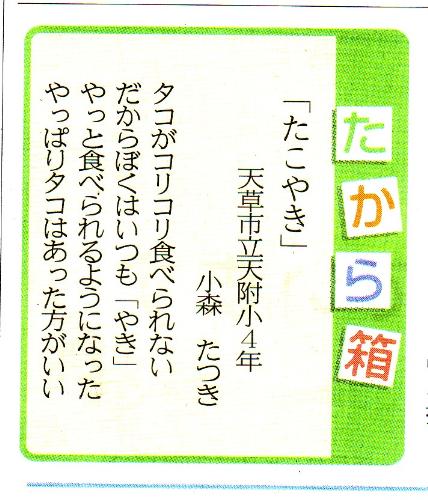 たから箱
「たこやき」
天草市立天附小４年
小森　たつき
タコがコリコリ食べられない
だからぼくはいつも「やき」
やっと食べられるようになった
やっぱりタコはあった方がいい